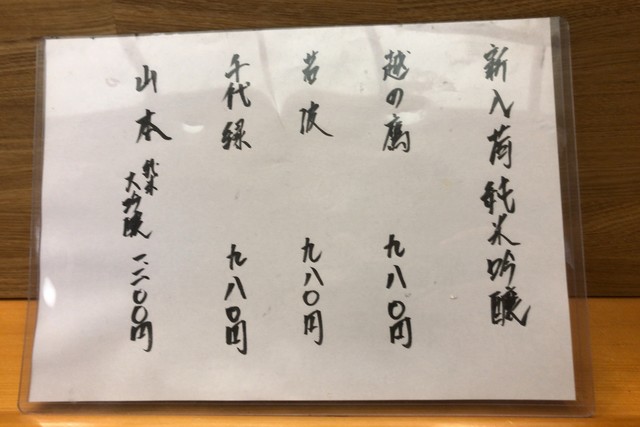 新入荷純米吟醸
越の鷹 九八〇円
若波 九八〇円
千代緑 九八〇円
山本 純米大吟醸 一二〇〇円